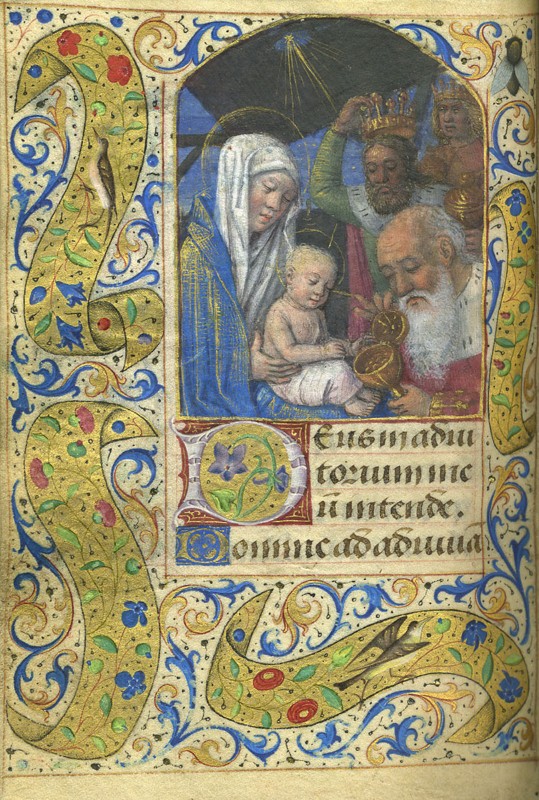 Deus in adiu
torium me
ū intende.
Domine ad adiuuā